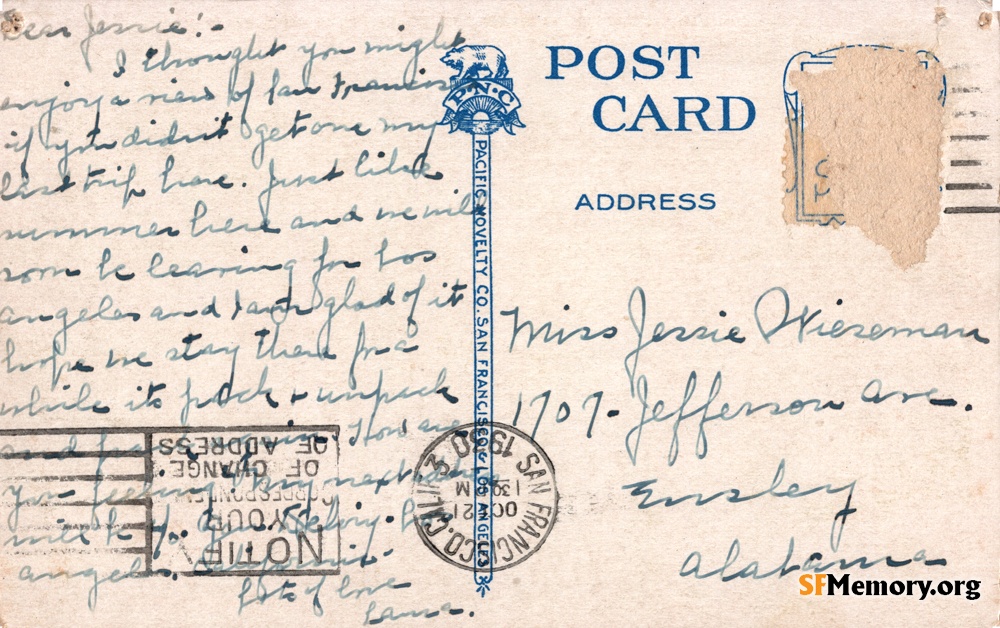 Dear Jessie:-
I thought you might
enjoy a view of San Francisco
if you didn't get one my
last trip here. Just like
summer here and we will
soon be leaving for Los
angeles and I am glad of it
hope we stay there for a
while its pack + unpack
and How are
you feeling My next
will be Los
angeles,
Lots of love
POST
CARD
ADDRESS
P.N.C
PACIFIC NOVELTY CO. SAN FRANCISCO & LOS ANGELES
Miss Jessie Wieseman
1707- Jefferson ave.
Ensley
alabama
SAN FRANCISCO, CALIF. 3
OCT 21
130 PM
1930
NOTIFY
YOUR
CORRESPONDENTS
OF CHANGE
OF ADDRESS
SFMemory.org